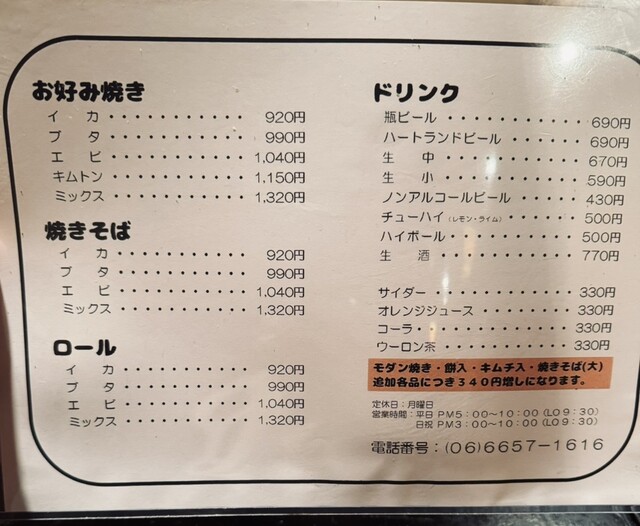 お好み焼き
イカ・・・・・・・・・・・920円
ブタ・・・・・・・・・・・990円
エビ・・・・・・・・・・・1,040円
キムトン・・・・・・・・・・・1,150円
ミックス・・・・・・・・・・・1,320円
焼きそば
イカ・・・・・・・・・・・920円
ブタ・・・・・・・・・・・990円
エビ・・・・・・・・・・・1,040円
ミックス・・・・・・・・・・・1,320円
ロール
イカ・・・・・・・・・・・920円
ブタ・・・・・・・・・・・990円
エビ・・・・・・・・・・・1,040円
ミックス・・・・・・・・・・・1,320円
ドリンク
瓶ビール・・・・・・・・・・・690円
ハートランドビール・・・・・・690円
生中・・・・・・・・・・・670円
生小・・・・・・・・・・・590円
ノンアルコールビール・・・・・430円
チューハイ(レモン・ライム)・・・・・・500円
ハイボール・・・・・・・・・・500円
生酒・・・・・・・・・・・770円
サイダー・・・・・・・・・・・330円
オレンジジュース・・・・・・・330円
コーラ・・・・・・・・・・・330円
ウーロン茶・・・・・・・・・・330円
モダン焼き・餅入・キムチ入・焼きそば(大)
追加各品につき340円増しになります。
定休日:月曜日
営業時間:平日 PM5:00~10:00(LO9:30)
日祝 PM3:00~10:00(LO9:30)
電話番号:(06)6657-1616